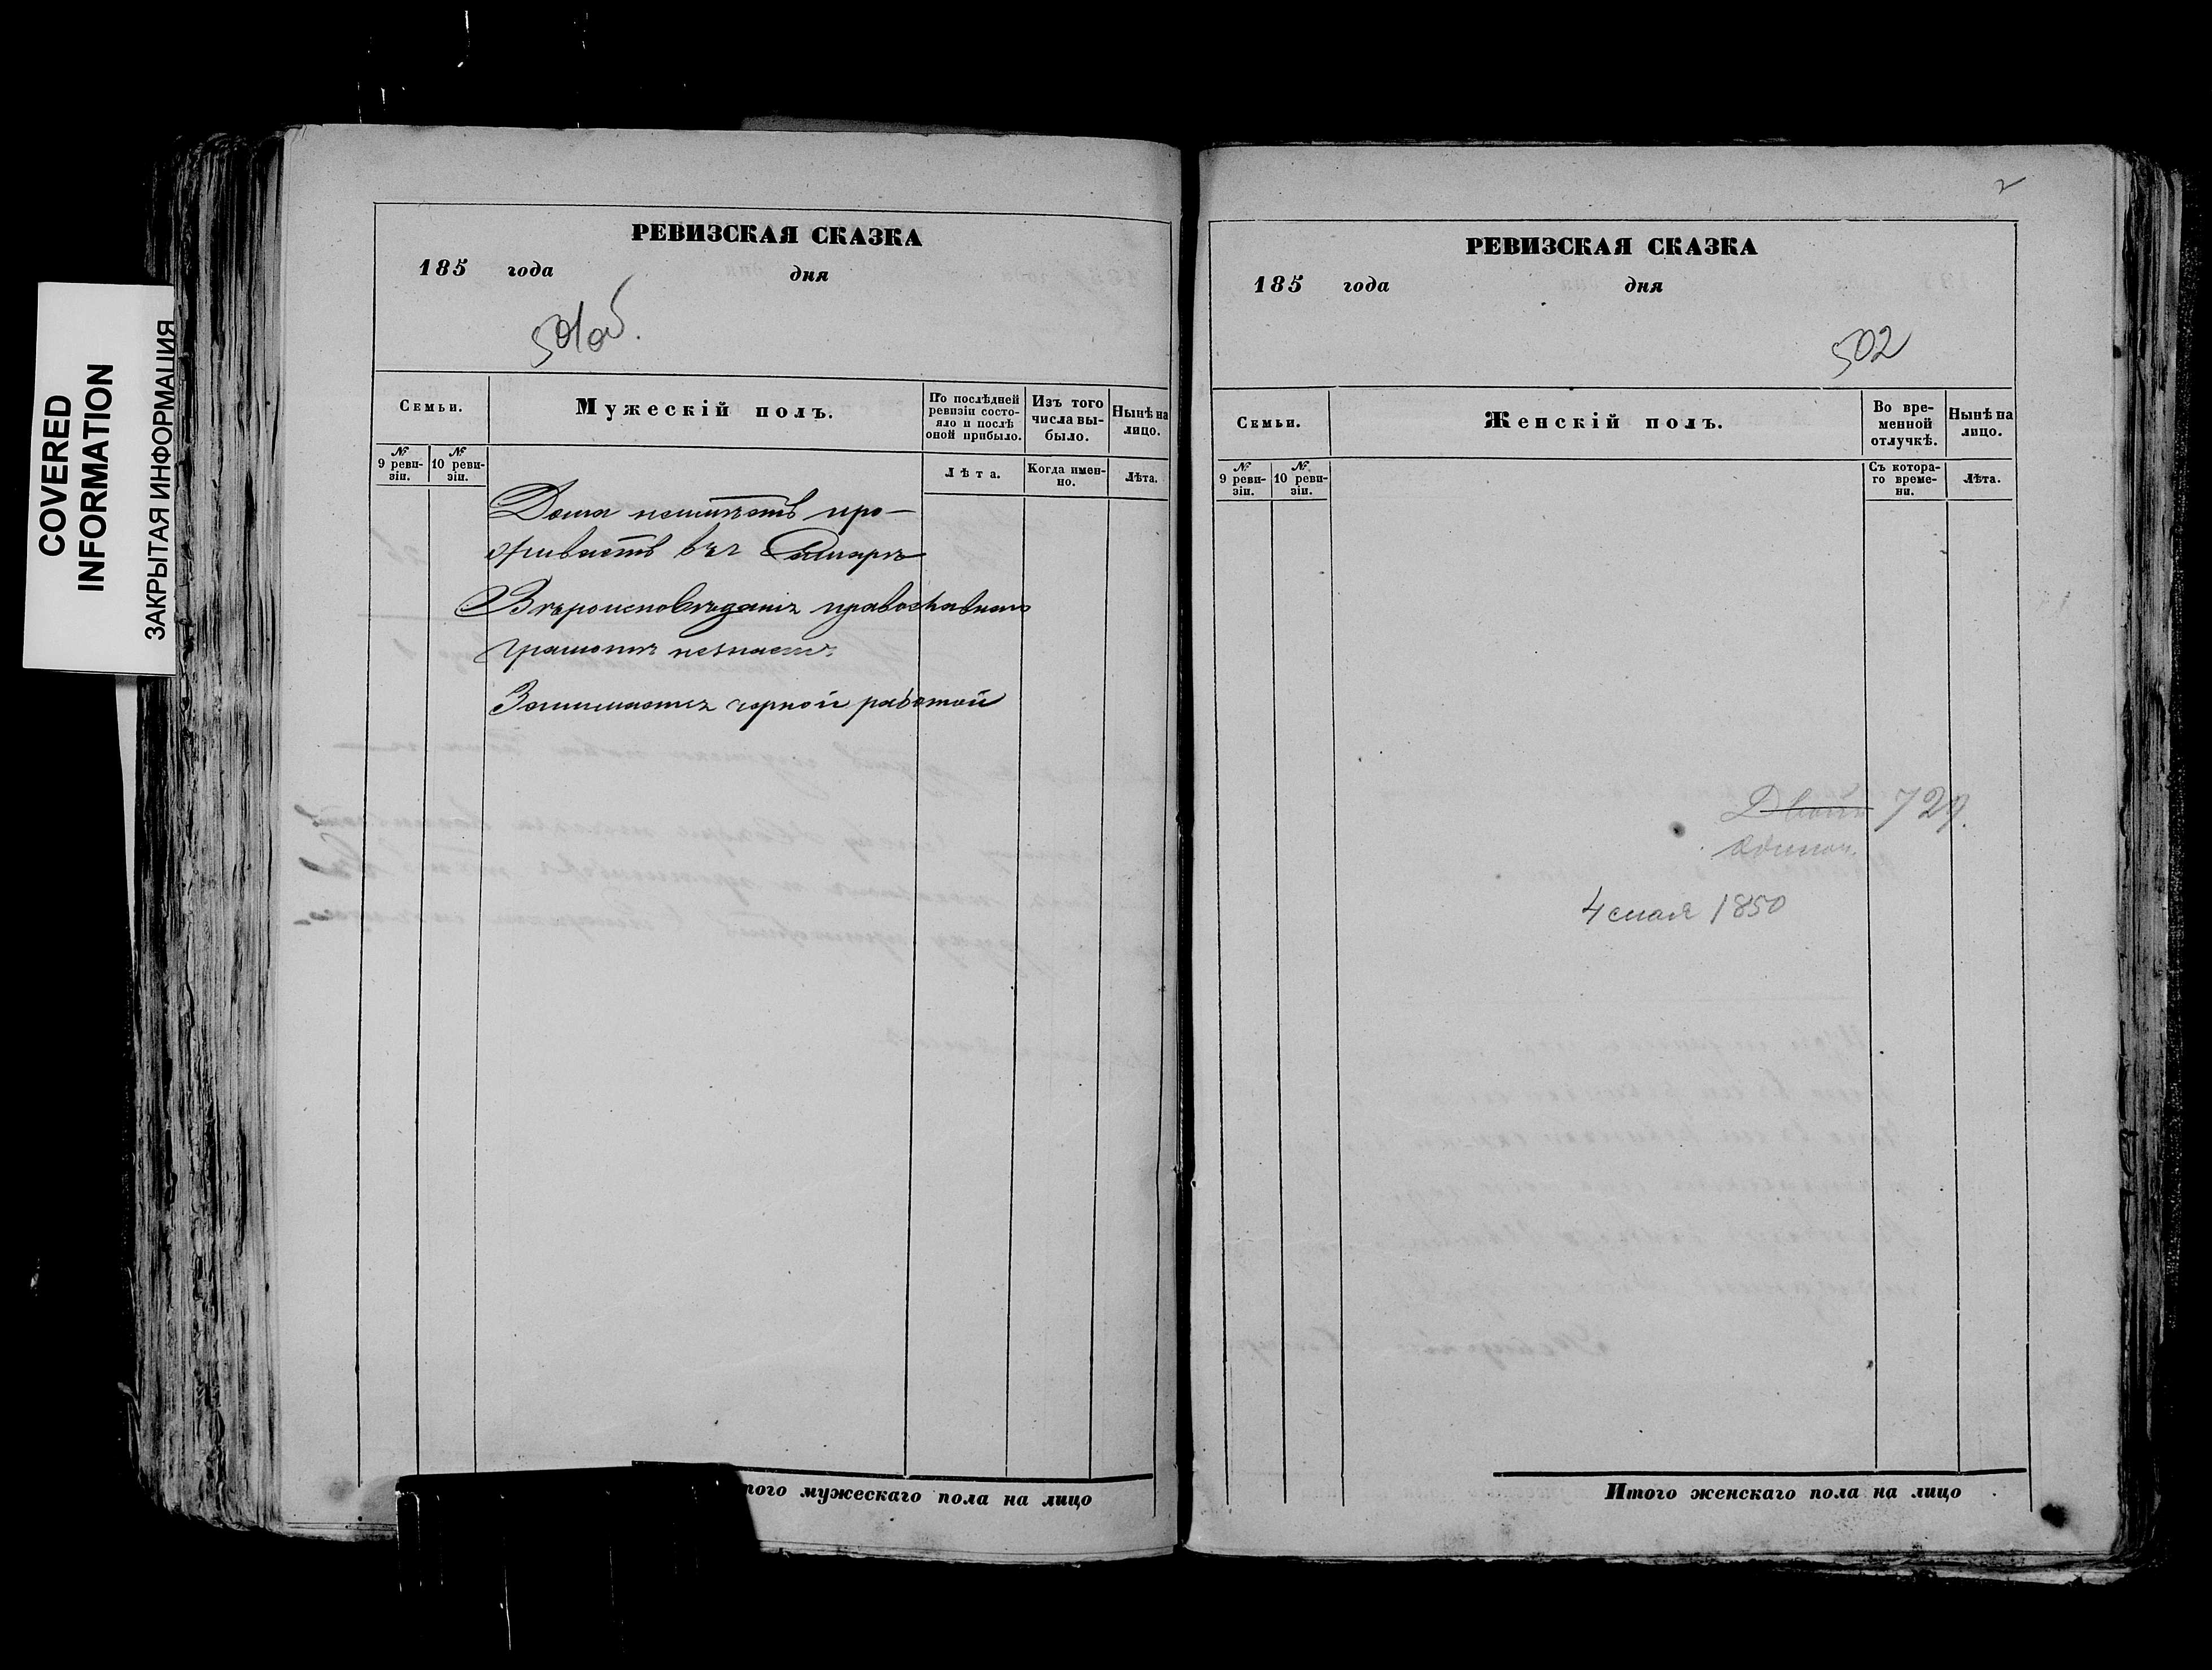 COVERED
INFORMATION
ЗАКРЫТАЯ ИНФОРМАЦИЯ
РЕВИЗСКАЯ СКАЗКА
185 года дня
501об.
Семьи.
Мужескій полъ.
По послѣдней ревизіи состояло и послѣ оной прибыло.
Изъ того числа выбыло.
Нынѣ на лицо.
№ 9 ревизіи.
№ 10 ревизіи.
Лѣта.
Когда именно.
Лѣта.
Дома неимѣетъ про-
живаетъ въ г Самарѣ
Вѣроисповѣданія православнаго
грамотѣ незнаетъ
Занимается черной работой
того мужескаго пола на лицо
2
РЕВИЗСКАЯ СКАЗКА
185 года дня
502
Семьи.
Женскій полъ.
Во временной отлучкѣ.
Нынѣ на лицо.
№ 9 ревизіи.
№ 10 ревизіи.
Съ котораго времени.
Лѣта.
729.
мая 1850
Итого женскаго пола на лицо